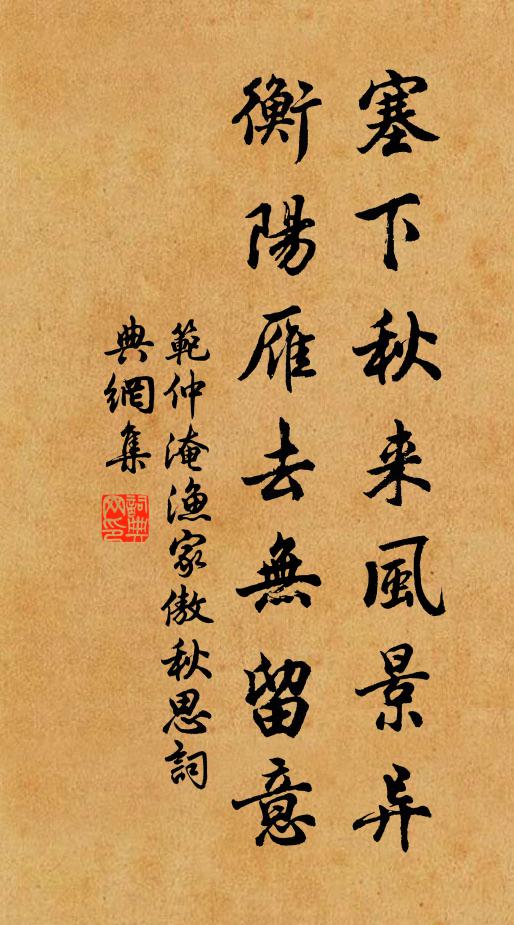 塞下秋来風景异
衡陽雁去無留意
範仲淹漁家傲秋思詞
典網集
詞典網印